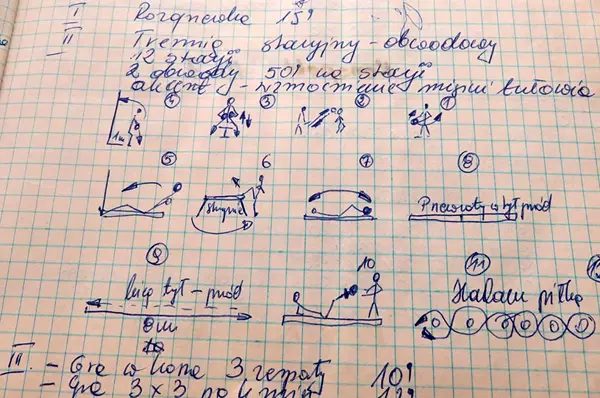 I Rozgrzewka 15'
II Trening stacyjny - obwodowy
12 stacji
2 obwody 50' na stacji
akcent - wzmocnienie mięśni tułowia
4 3 2 1
1m
5 6 7 8
Skrzynia
Przewroty w tył przód
9 10 11
bieg tył - przód
8m
III - Gra w 3 zespoły 10'
- Gra 3 x 3 na 12'